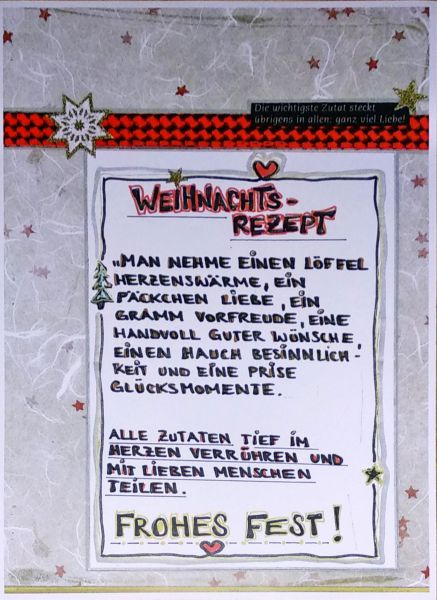 Die wichtigste Zutat steckt
übrigens in allen: ganz viel Liebe!
WEIHNACHTS-
REZEPT
„MAN NEHME EINEN LÖFFEL
HERZENSWÄRME, EIN
PÄCKCHEN LIEBE, EIN
GRAMM VORFREUDE, EINE
HANDVOLL GUTER WÜNSCHE,
EINEN HAUCH BESINNLICH-
KEIT UND EINE PRISE
GLÜCKSMOMENTE.
ALLE ZUTATEN TIEF IM
HERZEN VERRÜHREN UND
MIT LIEBEN MENSCHEN
TEILEN.
FROHES FEST!